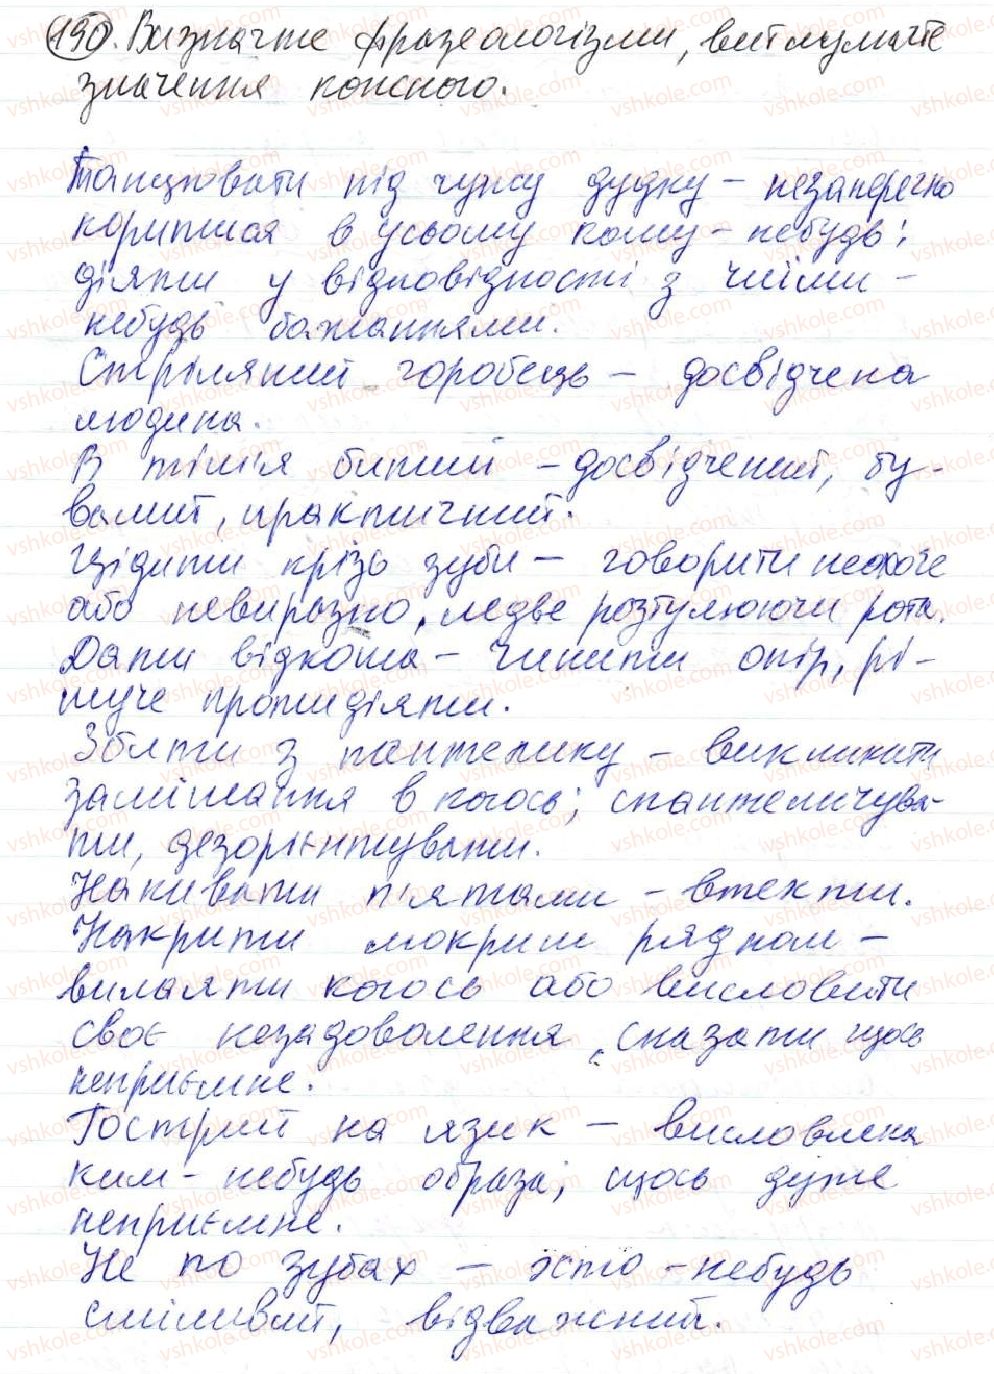 190. Визначте фразеологізми, витлумачте
значення кожного.
Танцювати під чужу дудку – незаперечно
коритися в усьому кому-небудь;
діяти у відповідності з чиїми-
небудь бажаннями.
Стріляний горобець – досвідчена
людина.
В тім'я битий – досвідчений, бу-
валий, практичний.
Цідити крізь зуби – говорити неохоче
або невиразно, ледве розтулюючи рота.
Дати відкоша – чинити опір, рі-
шуче протидіяти.
Збити з пантелику – викликати
замішання в когось; спантеличува-
ти, дезорієнтувати.
Накивати п'ятами – втекти.
Накрити мокрим рядном –
вилаяти когось або висловити
своє незадоволення, сказати щось
неприємне.
Гострий на язик – висловлена
ким-небудь образа; щось дуже
неприємне.
Не по зубах – хто-небудь
сміливий, відважний.